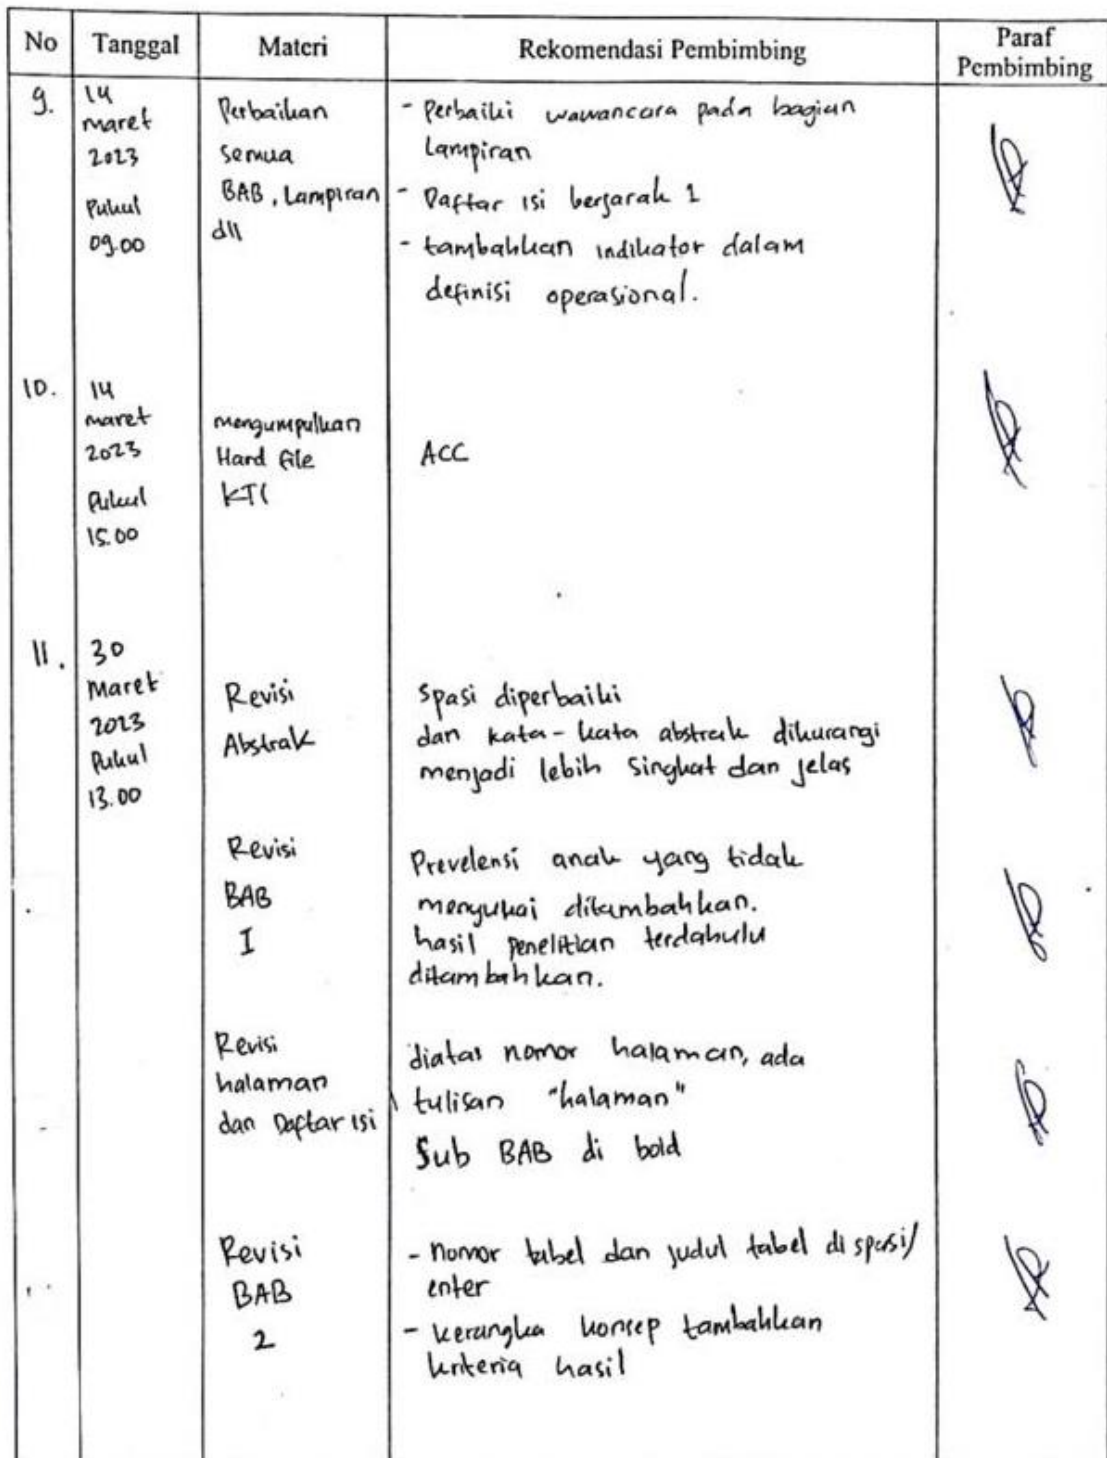 No Tanggal Materi Rekomendasi Pembimbing Paraf
Pembimbing
9.
14
maret
2023
Pukul
09.00
Perbaikan
semua
BAB, Lampiran
dll
- Perbaiki wawancara pada bagian
Lampiran
- Daftar isi berjarak 1
- tambahkan indikator dalam
definisi operasional.
10.
14
maret
2023
Pukul
15.00
mengumpulkan
Hard file
KTI
ACC
11.
30
Maret
2023
Pukul
13.00
Revisi
Abstrak
spasi diperbaiki
dan kata-kata abstrak dikurangi
menjadi lebih singkat dan jelas
Revisi
BAB
I
Prevelensi anak yang tidak
menyukai ditambahkan.
hasil penelitian terdahulu
ditambahkan.
Revisi
halaman
dan Daftar isi
diatas nomor halaman, ada
tulisan "halaman"
Sub BAB di bold
Revisi
BAB
2
- nomor tabel dan judul tabel di spasi/
enter
- kerangka konsep tambahkan
kriteria hasil